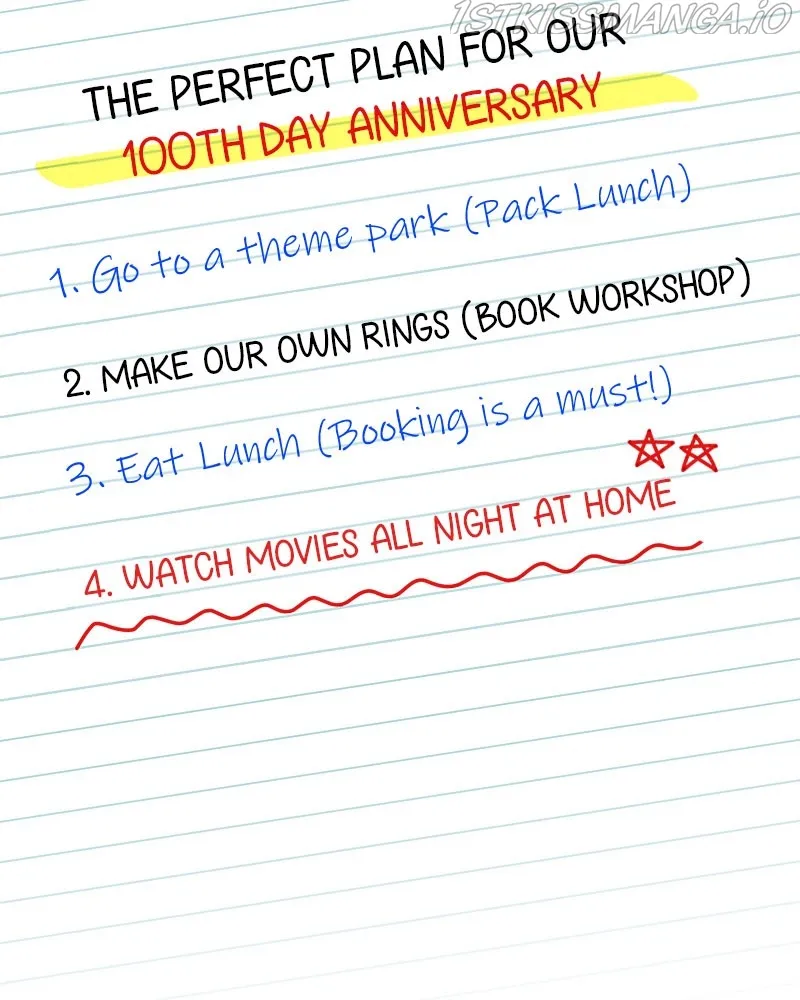 1STKISSMANGA.IO
THE PERFECT PLAN FOR OUR
100TH DAY ANNIVERSARY
1. Go to a theme park (Pack Lunch)
2. MAKE OUR OWN RINGS (BOOK WORKSHOP)
3. Eat Lunch (Booking is a must!)
4. WATCH MOVIES ALL NIGHT AT HOME